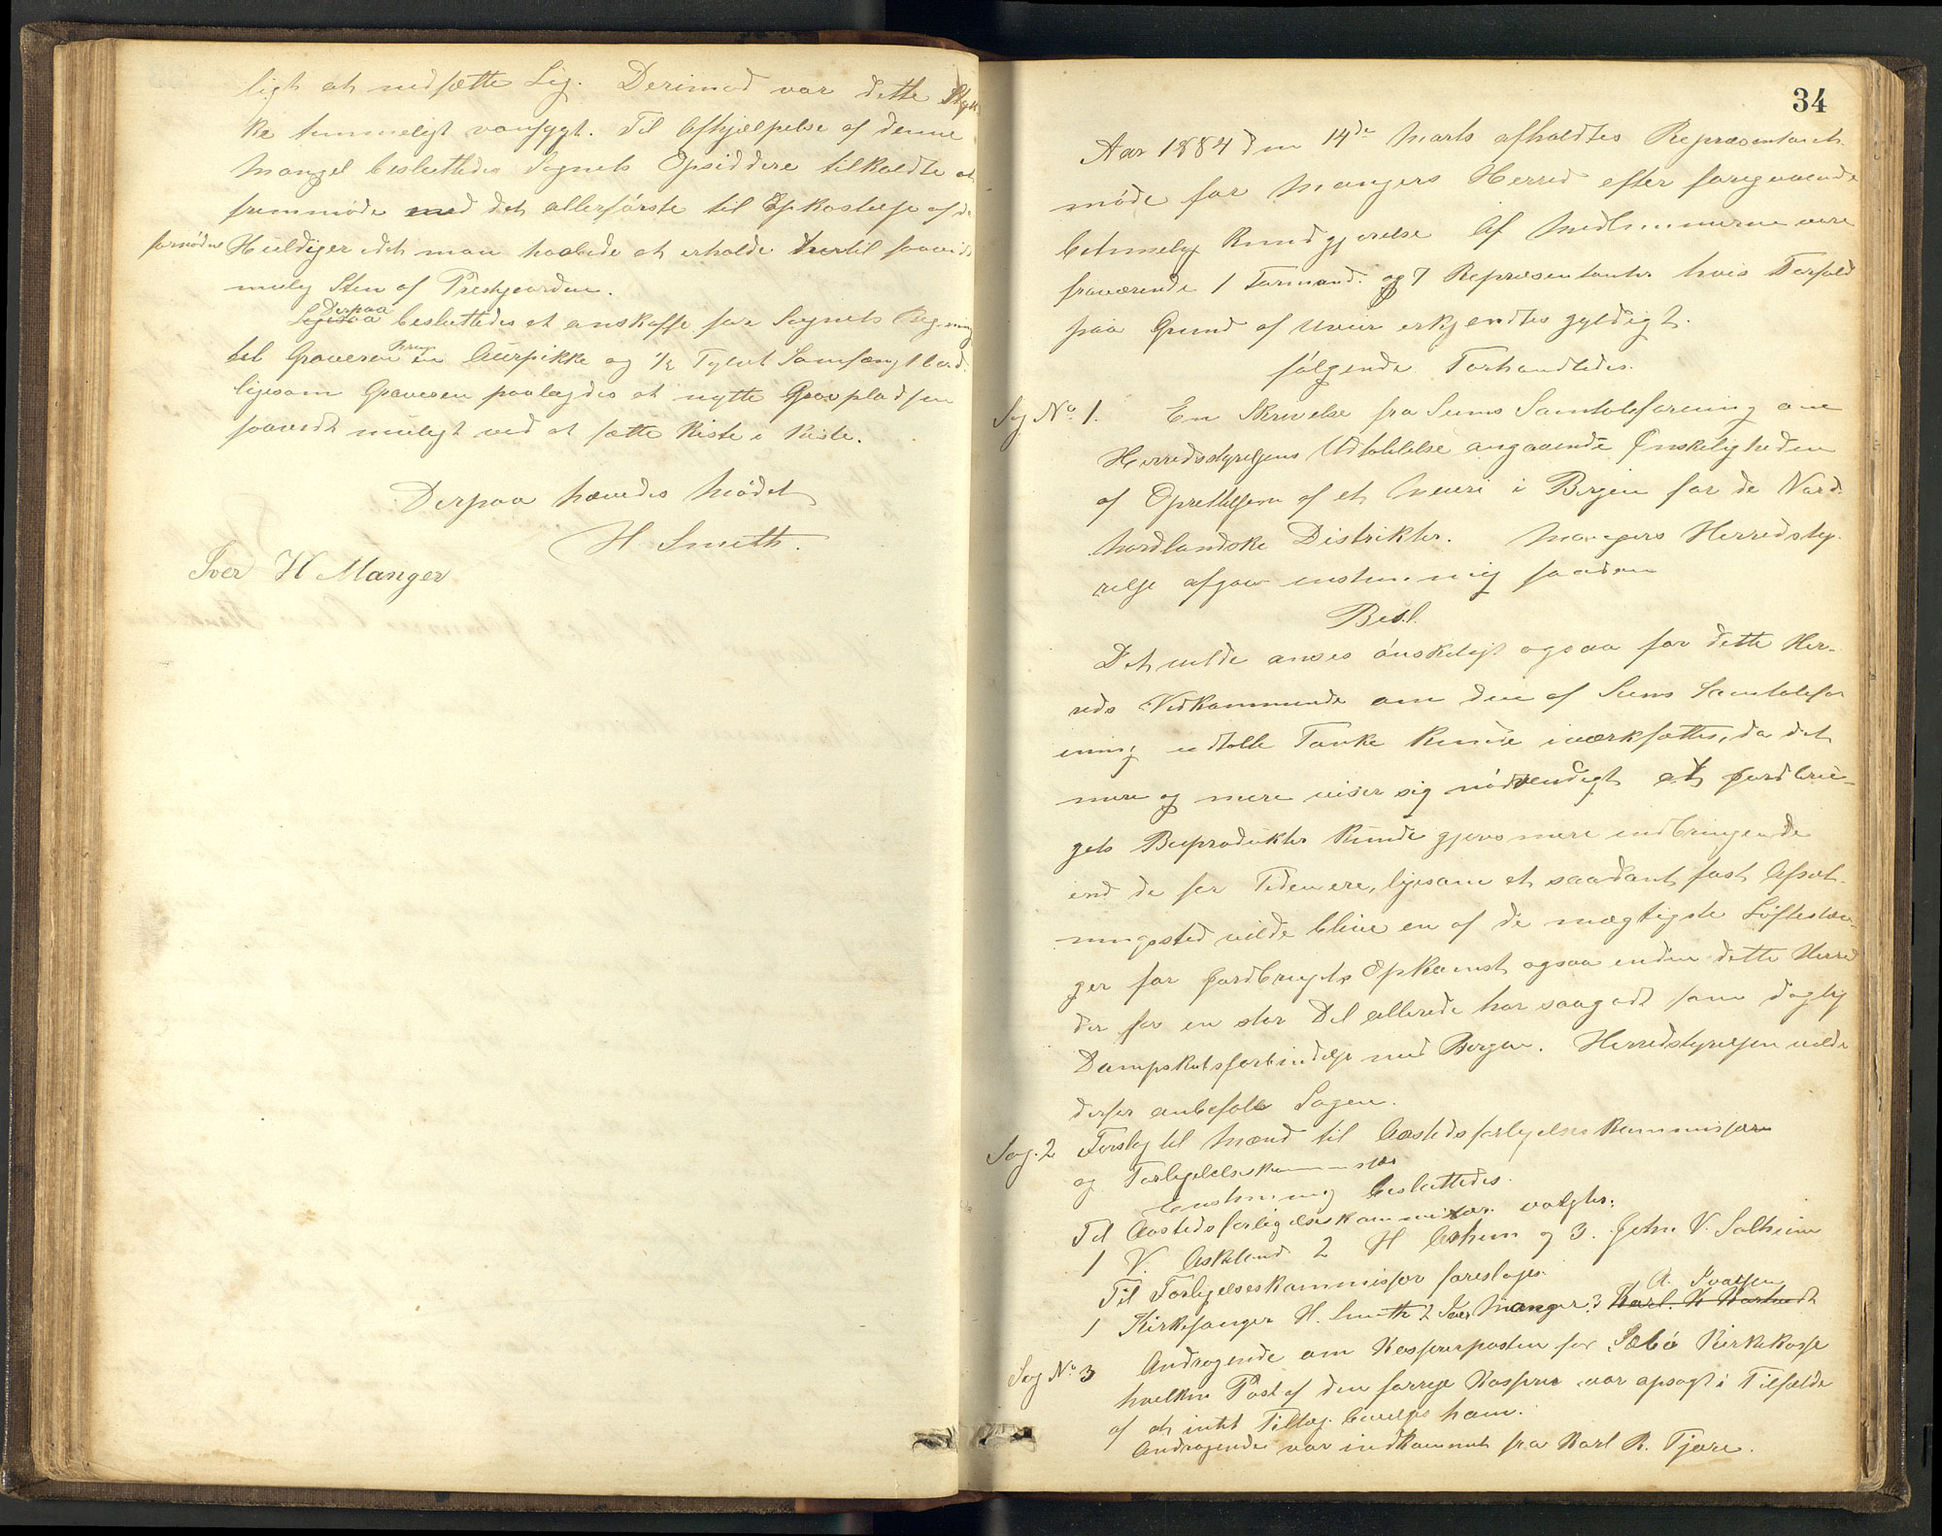 ligt at nedsætte Lig. Derimod var dette Styk
ke temmeligt vansygt. Til Afhjælpelse af denne
Mangel besluttedes Sognets Opsiddere tilkaldte at
fremmøde med det allerførste til Opkastelse af de
fornødne Huldiger idet man haabede at erholde hertil saavidt
mulig Sten af Prestgaarden.
Derpaa
Ligesaa besluttedes at anskaffe for Sognets Regning
til Graverens Brug en Aurpikke og ½ Tylvt Bord
ligesom Graveren paalagdes at nytte Gravpladsen
saavidt muligt ved at sætte Kiste i Kiste.
Derpaa hævedes Mødet
H Smith.
Iver H Manger
34
Aar 1884 den 14de Marts afholdtes Repræsentant
møde for Mangers Herred efter foregaaende
betimelig Kundgjørelse. Af Medlemmerne vare
fraværende 1 Formand og 7 Repræsentanter hvis Forfald
paa Grund af Uveir erkjendtes gyldigt.
følgende Forhandledes.
Sag No 1. En Skrivelse fra Seims Samtaleforening om
Herredsstyrelsens Udtalelse angaaende Ønskeligheden
af Oprettelsen af et Meieri i Bergen for de Nord
hordlandske Distrikter. Mangers Herredsty-
relse afgav enstemmig saadan
Besl.
Det vilde anses ønskeligt ogsaa for dette Her-
reds Vedkommende om den af Seims Samtalefor
ening udtalte Tanke kunde iværksættes, da det
mere og mere viser sig nødvendigt at Jordbru-
gets Biprodukter kunde gjøres mere indbringende
end de for Tiden ere, ligesom et saadant fast Afsæt-
ningssted vilde blive en af de mægtigste Løftestæn-
ger for Jordbrugets Opkomst ogsaa inden dette Herred
der for en stor Del allerede har saagodt som daglig
Dampskibsforbindelse med Bergen. Herredstyrelsen vilde
derfor anbefale Sagen.
Sag. 2 Forslag til Mænd til Aastedsforligelses Kommissær
og Forligelseskommissær
Enstemmig besluttedes.
Til Aastedsforligelseskommissær valgtes:
1 V. Askeland 2 H Askem og 3. John V. Solheim
Til Forligelseskommissær foreslages.
A. Ivarsen
1 Kirkesanger H. Smith 2 Iver Manger 3 Karl
Sag No 3 Andragende om Kassererposten for Sæbø Kirkekasse
hvilken Post af den forrige Kasserer var opsagt i Tilfælde
af at intet Tillæg bevilges ham.
Andragende var indkommet fra Karl R. Fjære.